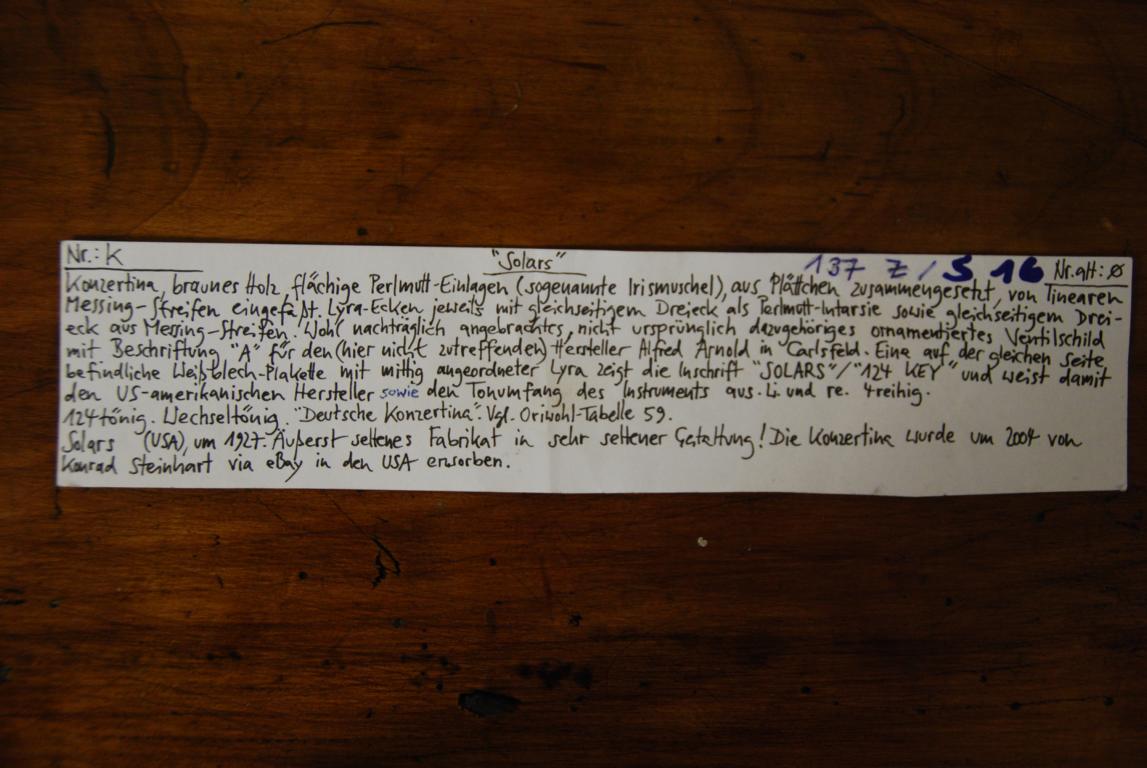 Nr.: K "Solars" 137 Z / S 16 Nr. alt: ø
Konzertina, braunes Holz, flächige Perlmutt-Einlagen (sogenannte Irismuschel), aus Plättchen zusammengesetzt, von linearen
Messing-Streifen eingefaßt. Lyra-Ecken jeweils mit gleichseitigem Dreieck als Perlmutt-Intarsie sowie gleichseitigem Drei-
eck aus Messing-Streifen. Wohl nachträglich angebrachtes, nicht ursprünglich dazugehöriges ornamentiertes Ventilschild
mit Beschriftung "A" für den (hier nicht zutreffenden) Hersteller Alfred Arnold in Carlsfeld. Eine auf der gleichen Seite
befindliche Weißblech-Plakette mit mittig angeordneter Lyra zeigt die Inschrift "SOLARS"/"124 KEY" und weist damit
den US-amerikanischen Hersteller sowie den Tonumfang des Instruments aus. Li. und re. 4reihig.
124tönig. Wechseltönig. "Deutsche Konzertina". Vgl. Oriwohl-Tabelle 59.
Solars (USA), um 1927. Äußerst seltenes Fabrikat in sehr seltener Gestaltung! Die Konzertina wurde um 2004 von
Konrad Steinhart via eBay in den USA erworben.